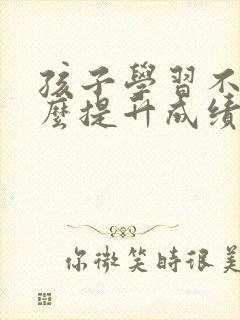 孩子學習不
麼提升成績
你微笑時很美